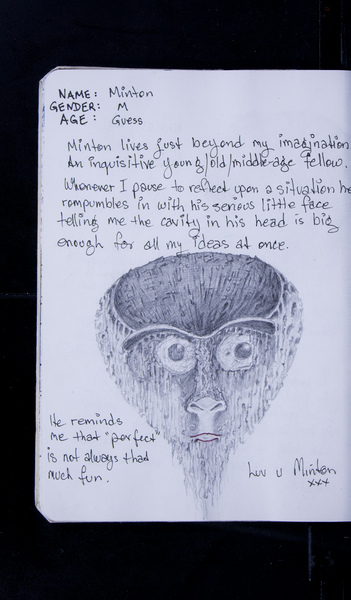 NAME: Minton
GENDER: M
AGE: Guess
Minton lives just beyond my imagination
An inquisitive young/old/middle-age fellow.
Whenever I pause to reflect upon a situation he
rompumbles in with his serious little face
telling me the cavity in his head is big
enough for all my ideas at once.
He reminds
me that "perfect"
is not always that
much fun.
Luv u Minton
xxx